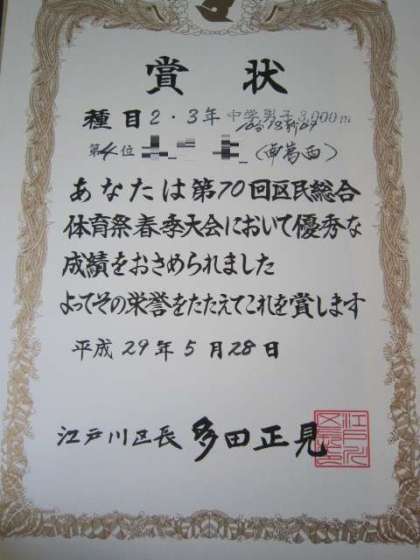 賞状
種目 2・3年 中学男子 3,000m
第4位 (南葛西)
あなたは第70回区民総合
体育祭春季大会において優秀な
成績をおさめられました
よってその栄誉をたたえてこれを賞します
平成 29年 5月 28日
江戸川区長 多田正見